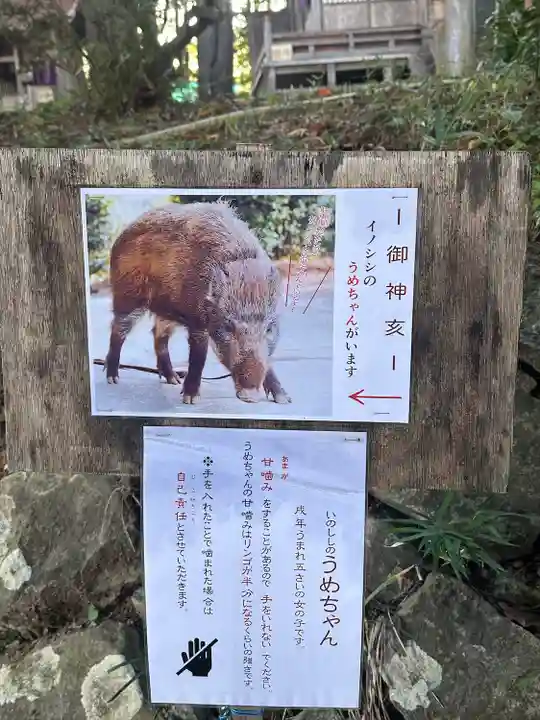 ー御神亥ー
イノシシの
うめちゃんがいます
いのししのうめちゃん
戌年うまれ五さいの女の子です。
あまが
甘噛みをすることがあるので 手をいれないでください。
うめちゃんの甘噛みはリンゴが半分になるくらいの強さです。
※手を入れたことで噛まれた場合は
自己責任とさせていただきます。